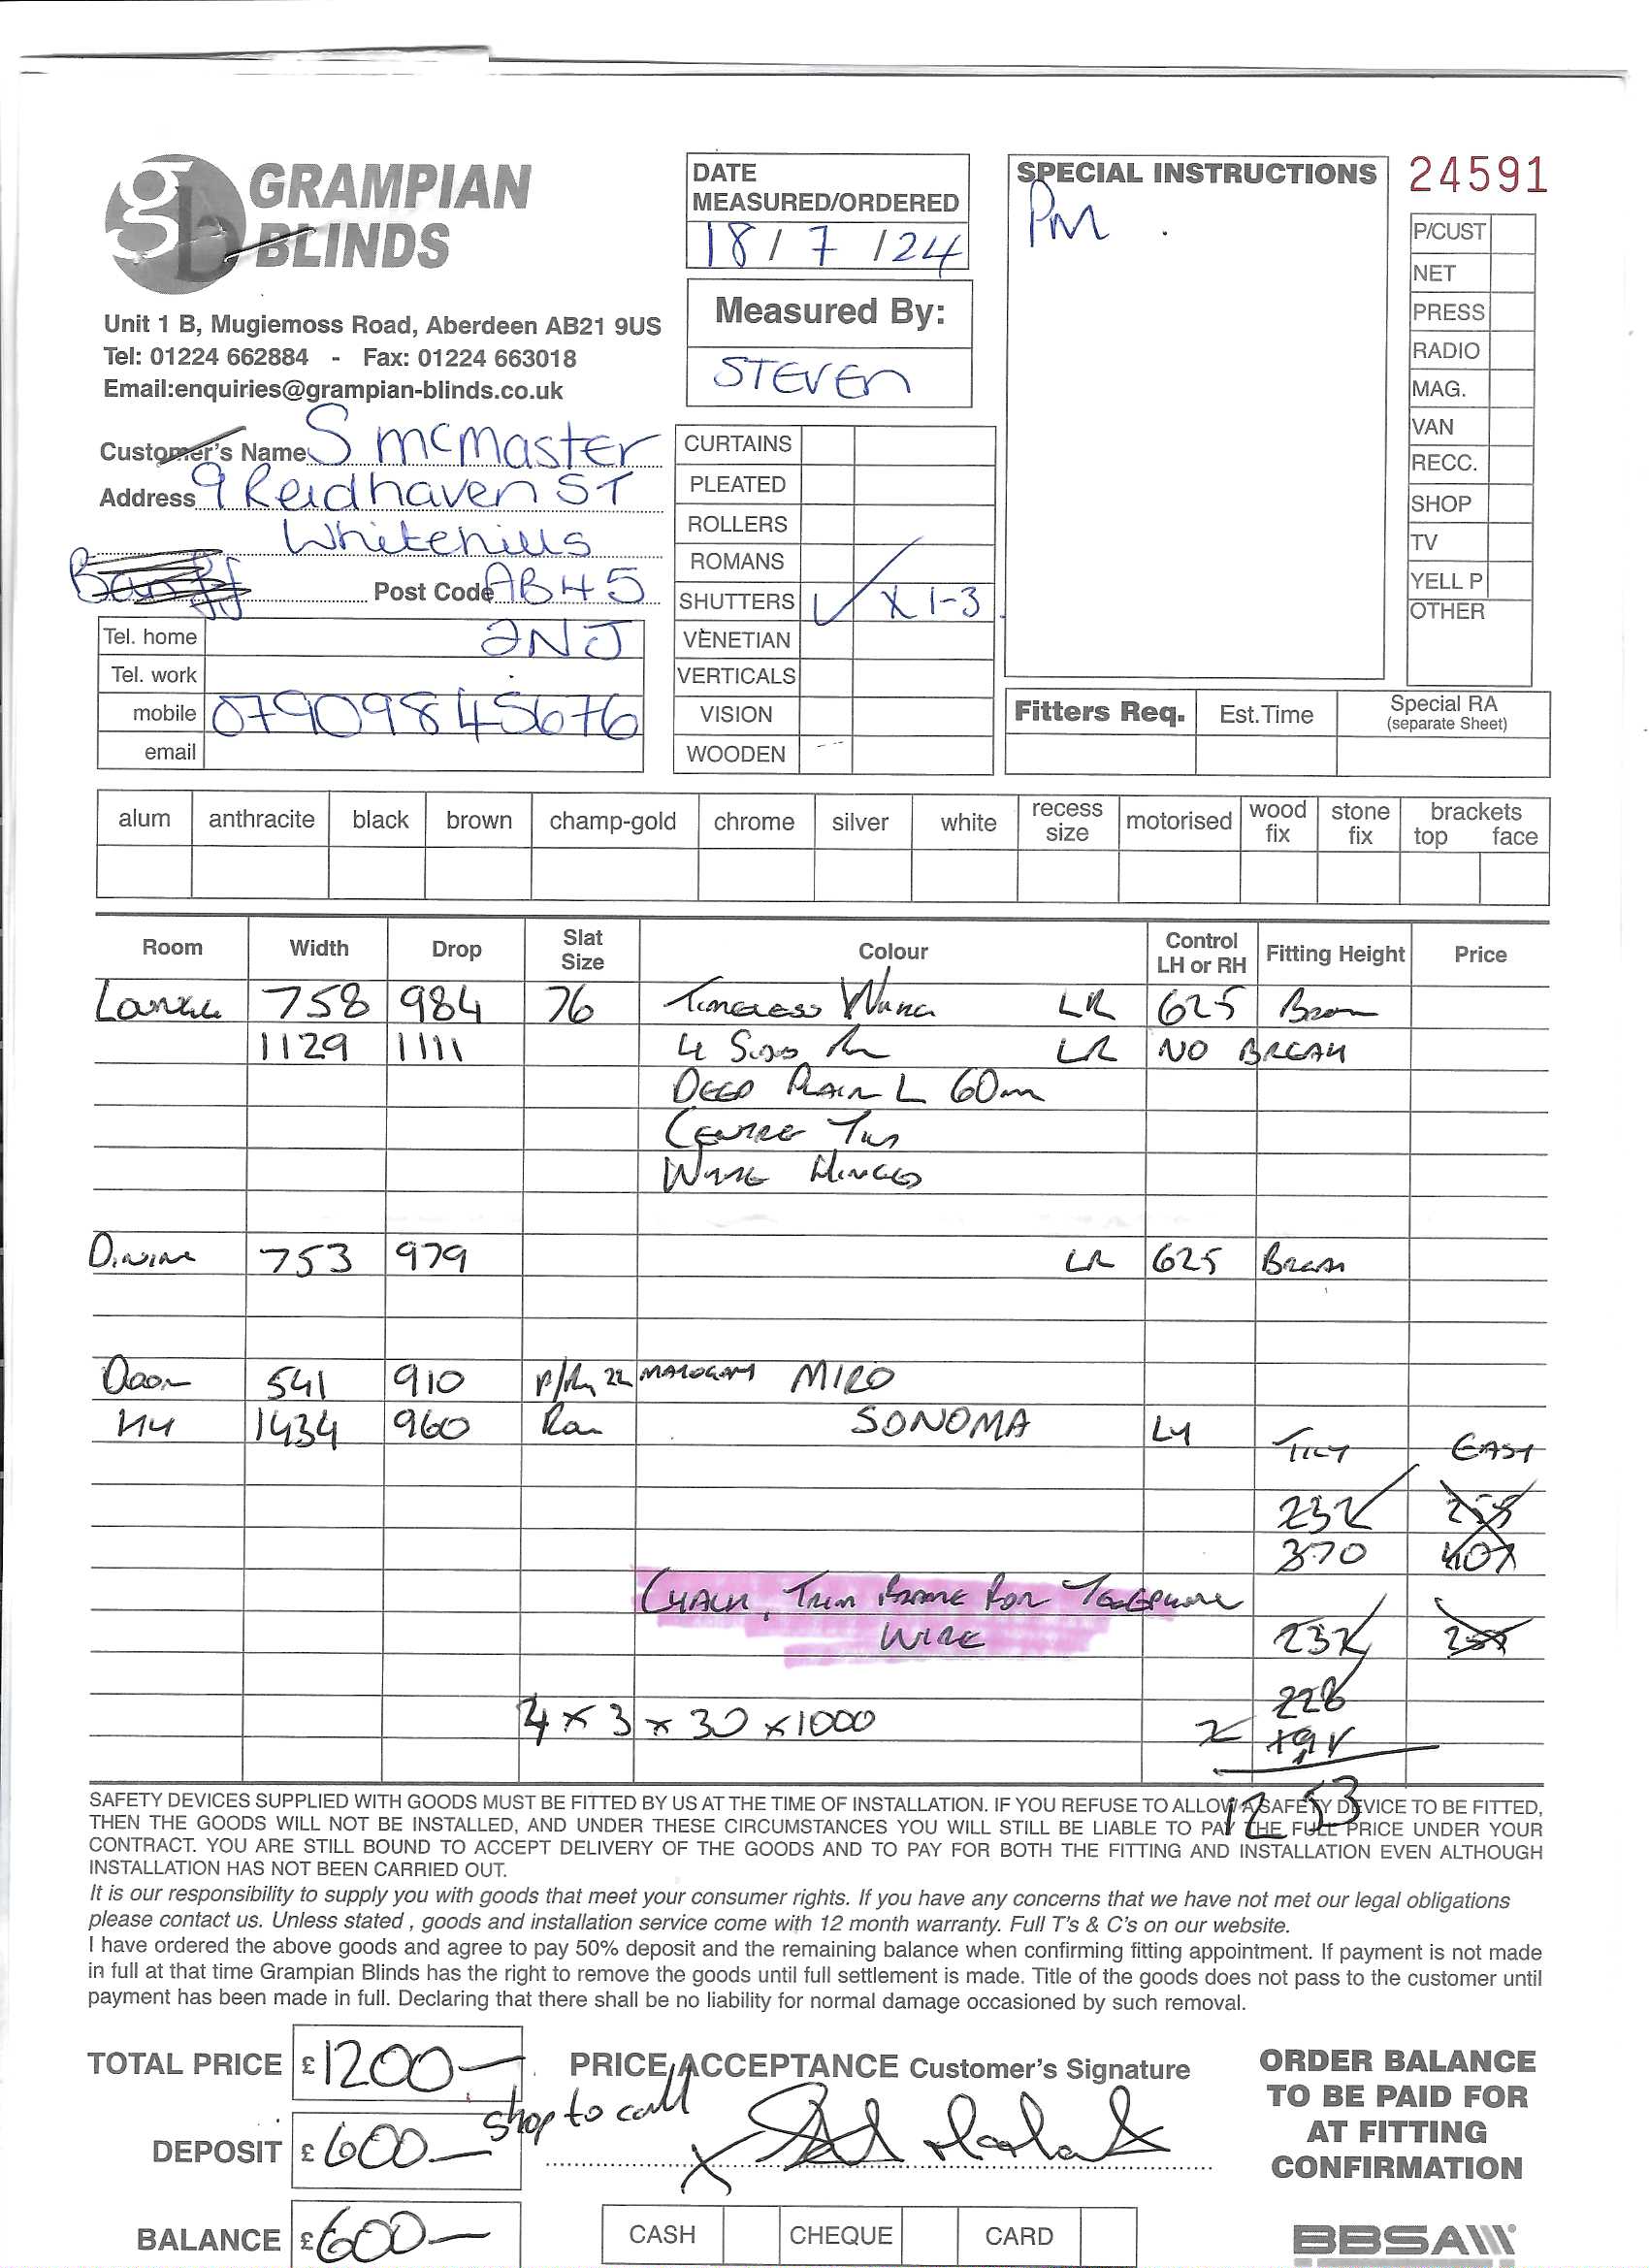 GRAMPIAN
BLINDS
Unit 1 B, Mugiemoss Road, Aberdeen AB21 9US
Tel: 01224 662884 - Fax: 01224 663018
Email:enquiries@grampian-blinds.co.uk
Customer's Name S McMaster
Address 9 Reidhaven ST
Whitehills
Banff Post Code AB45
2NJ
Tel. home
Tel. work
mobile 07909845676
email
DATE
MEASURED/ORDERED
18/7/24
Measured By:
STEVEN
CURTAINS
PLEATED
ROLLERS
ROMANS
SHUTTERS ✓ X 1-3
VENETIAN
VERTICALS
VISION
WOODEN
SPECIAL INSTRUCTIONS
PM
24591
P/CUST
NET
PRESS
RADIO
MAG.
VAN
RECC.
SHOP
TV
YELL P
OTHER
Fitters Req. Est.Time Special RA
(separate Sheet)
alum anthracite black brown champ-gold chrome silver white recess size motorised wood fix stone fix brackets top face
Room Width Drop Slat Size Colour Control LH or RH Fitting Height Price
Lounge 758 984 76 Timeless White LR 625
1129 1111 4 Sided LR NO BREAK
DEEP PLAIN L 60mm
CENTRE
HINGES
Dining 753 979 LR 625
Door 541 910 MAHOGANY MIRO
1434 960 SONOMA
TILT EASY
232
370 407
TRIM FRAME FOR TELEPHONE
WIRE 232
228
4 x 3 x 30 x 1000
1253
SAFETY DEVICES SUPPLIED WITH GOODS MUST BE FITTED BY US AT THE TIME OF INSTALLATION. IF YOU REFUSE TO ALLOW A SAFETY DEVICE TO BE FITTED,
THEN THE GOODS WILL NOT BE INSTALLED, AND UNDER THESE CIRCUMSTANCES YOU WILL STILL BE LIABLE TO PAY THE FULL PRICE UNDER YOUR
CONTRACT. YOU ARE STILL BOUND TO ACCEPT DELIVERY OF THE GOODS AND TO PAY FOR BOTH THE FITTING AND INSTALLATION EVEN ALTHOUGH
INSTALLATION HAS NOT BEEN CARRIED OUT.
It is our responsibility to supply you with goods that meet your consumer rights. If you have any concerns that we have not met our legal obligations
please contact us. Unless stated , goods and installation service come with 12 month warranty. Full T's & C's on our website.
I have ordered the above goods and agree to pay 50% deposit and the remaining balance when confirming fitting appointment. If payment is not made
in full at that time Grampian Blinds has the right to remove the goods until full settlement is made. Title of the goods does not pass to the customer until
payment has been made in full. Declaring that there shall be no liability for normal damage occasioned by such removal.
TOTAL PRICE £1200—
PRICE ACCEPTANCE Customer's Signature
shop to call
DEPOSIT £600—
BALANCE £600—
CASH CHEQUE CARD
ORDER BALANCE
TO BE PAID FOR
AT FITTING
CONFIRMATION
BBSA